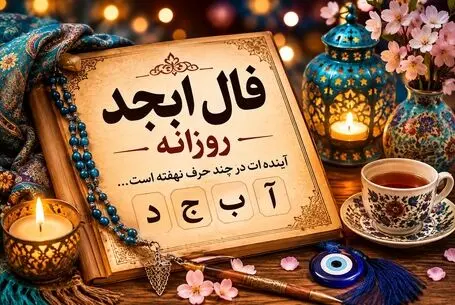 فال ابجد
روزانه
آینده ات در چند حرف نهفته است...
آ ب ج د